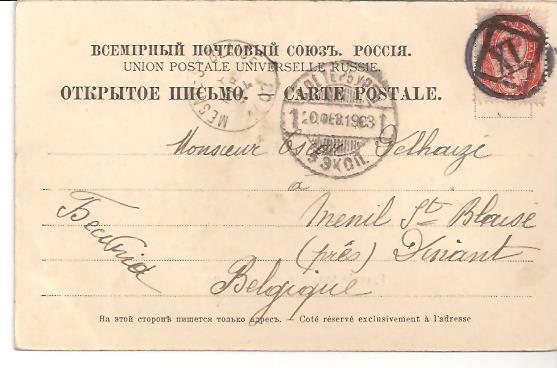 ВСЕМІРНЫЙ ПОЧТОВЫЙ СОЮЗЪ. РОССІЯ.
UNION POSTALE UNIVERSELLE RUSSIE.
ОТКРЫТОЕ ПИСЬМО. — CARTE POSTALE.
XI
С.ПЕТЕРБУРГЪ
1 20.ФЕВ.1903
4 ЭКСП.
Monsieur Oscar Delhaize
à
Menil St Blaise
(près) Dinant
Belgique
Бельгія
На этой сторонѣ пишется только адресъ. — Coté réservé exclusivement à l'adresse